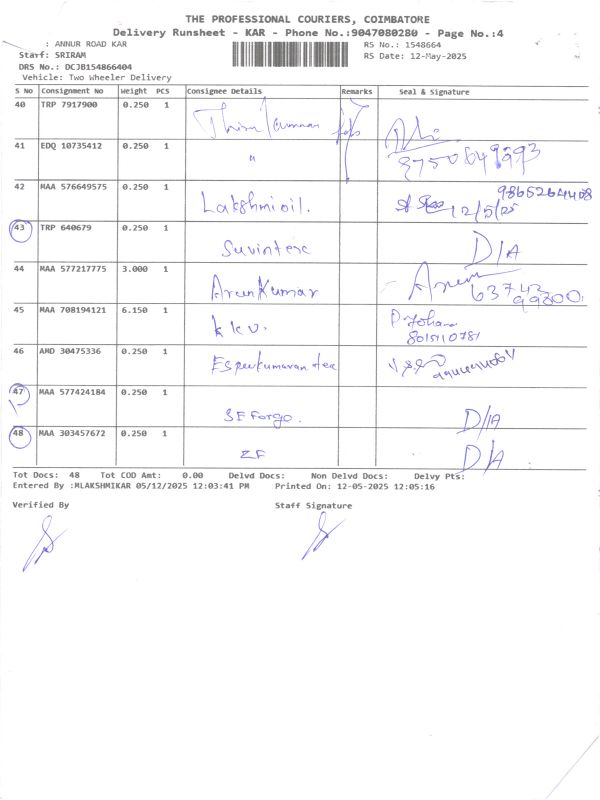 THE PROFESSIONAL COURIERS, COIMBATORE
Delivery Runsheet - KAR - Phone No.:9047080280 - Page No.:4
: ANNUR ROAD KAR
RS No.: 1548664
Starf: SRIRAM
RS Date: 12-May-2025
DRS No.: DCJB154866404
Vehicle: Two Wheeler Delivery
S No Consignment No Weight PCS Consignee Details Remarks Seal & Signature
40 TRP 7917900 0.250 1
41 EDQ 10735412 0.250 1 "
42 MAA 576649575 0.250 1 Lakshmi oil. 12/5/25
43 TRP 640679 0.250 1 Suvintex D/A
44 MAA 577217775 3.000 1 ArunKumar
45 MAA 708194121 6.150 1
46 AMD 30475336 0.250 1
47 MAA 577424184 0.250 1 SF Forgo. D/A
48 MAA 303457672 0.250 1 ZF D/A
Tot Docs: 48 Tot COD Amt: 0.00 Delvd Docs: Non Delvd Docs: Delvy Pts:
Entered By :MLAKSHMIKAR 05/12/2025 12:03:41 PM Printed On: 12-05-2025 12:05:16
Verified By Staff Signature